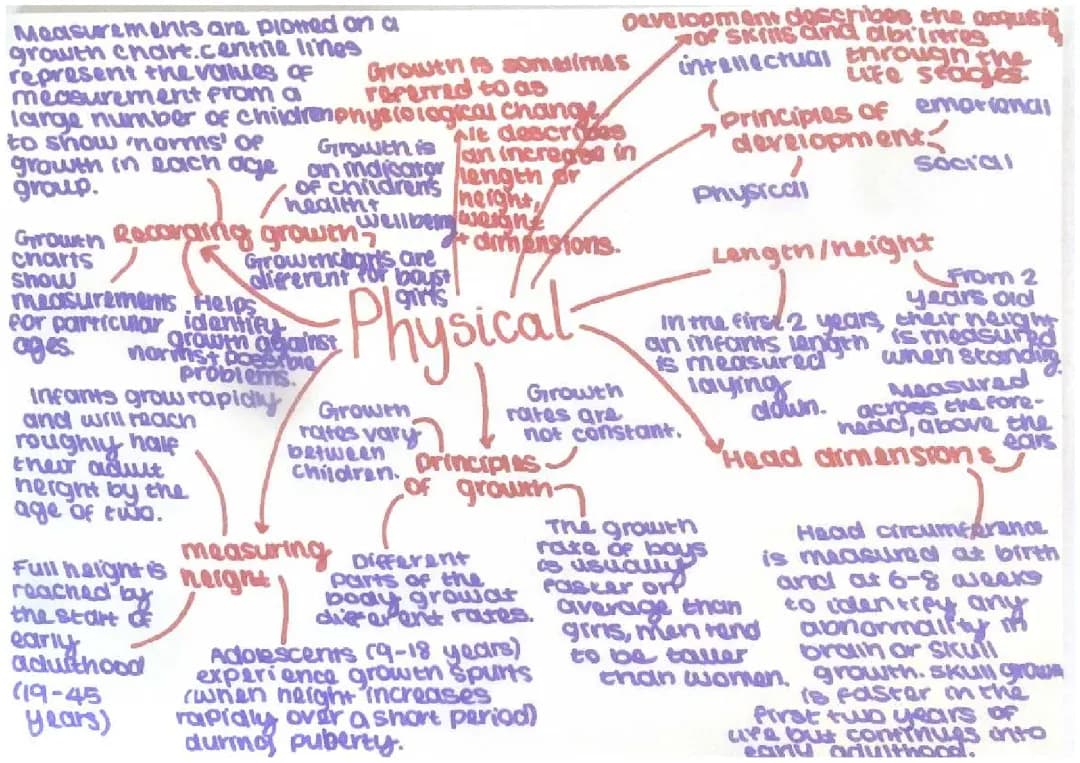 Measurements are plotted on a
growth chart. centile lines
represent the values of
measurement from a
large number of children
to show 'norms' of
growth in each age
group.
Growth is sometimes
referred to as
physiological change.
It describes
an increase in
length or
height,
weight
+ dimensions.
Development describes the acquisi
of skills and abilities
through the
life stages.
intellectual
principles of
development
emotional
social
Physical
Growth is
an indicator
of childrens
health +
wellbeing
Recording growth
Growth
charts
show
measurements
for particular
ages.
Helps
identify
growth against
norms + possible
problems.
Growth charts are
different for boys +
girls
Physical
Length/height
In the first 2 years,
an infants length
is measured
laying
down.
From 2
years old
their height
is measured
when standing.
Head dimensions
Measured
across the fore-
head, above the
ears
Head circumference
is measured at birth
and at 6-8 weeks
to identify any
abnormality in
brain or skull
growth. skull grown
is faster in the
first two years of
life but continues into
early adulthood.
principles
of growth
Growth
rates vary
between
children.
Growth
rates are
not constant.
Different
parts of the
body grow at
different rates.
The growth
rate of boys
is usually
faster on
average than
girls, men tend
to be taller
than women.
measuring
height
Infants grow rapidly
and will reach
roughly half
their adult
height by the
age of two.
Full height is
reached by
the start of
early
adulthood
(19-45
years)
Adolescents (9-18 years)
experience growth spurts
(when height increases
rapidly over a short period)
during puberty.